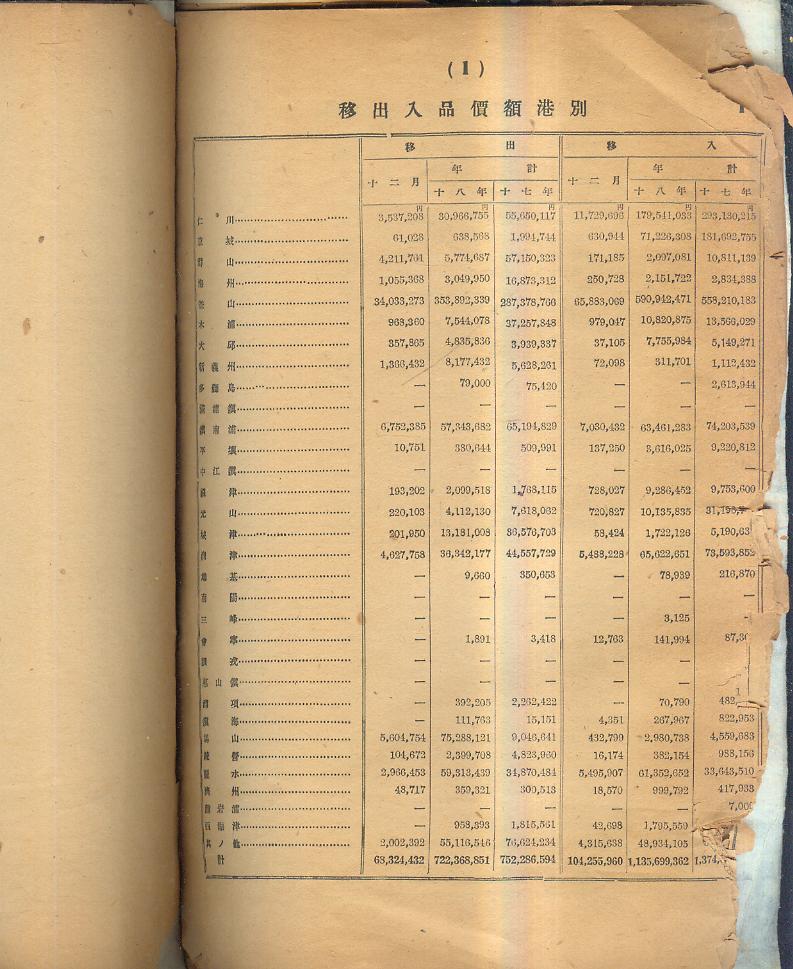 (1)
移出入品價額港別
移 出 移 入
年 計 年 計
十二月 十八年 十七年 十二月 十八年 十七年
円 円 円 円 円 円
仁川 3,537,208 30,966,755 55,650,117 11,729,696 179,541,033 293,130,215
京城 61,028 638,568 1,994,744 630,944 71,226,308 181,692,755
群山 4,211,761 5,774,687 57,150,323 171,185 2,097,081 10,811,139
州 1,055,368 3,049,950 16,873,312 250,728 2,151,722 2,834,388
釜山 34,033,273 353,892,339 287,378,766 65,883,069 590,942,471 558,210,183
木浦 968,360 7,544,078 37,257,848 979,047 10,820,875 13,566,029
大邱 357,865 4,835,836 3,939,337 37,105 7,755,984 5,149,271
新義州 1,366,432 8,177,432 5,628,261 72,098 311,701 1,112,432
多獅島 — 79,000 75,420 — — 2,613,944
浦鎭 — — — — — —
鎭南浦 6,752,385 57,343,682 65,194,829 7,030,432 63,461,283 74,203,539
平壤 10,751 380,644 509,991 137,250 3,616,025 9,220,812
中江鎭 — — — — — —
津 193,202 2,099,518 1,768,115 728,027 9,286,452 9,753,600
元山 220,103 4,112,130 7,618,062 720,827 10,135,835
城津 201,950 13,181,008 36,576,703 58,424 1,722,126 5,190,63
淸津 4,627,758 36,342,177 44,557,729 5,488,228 65,622,651 73,593,852
雄基 — 9,660 350,653 — 78,939 216,870
南陽 — — — — — —
三峰 — — — — 3,125 —
會寧 — 1,891 3,418 12,763 141,994 87,3
戎 — — — — —
惠山鎭 — — — — —
浦項 — 392,205 2,262,422 — 70,790 482,
鎭海 — 111,763 15,151 4,351 267,967 822,953
馬山 5,604,754 75,288,121 9,046,641 432,799 2,980,738 4,559,683
統營 104,672 2,399,708 4,823,960 16,174 382,154 988,156
麗水 2,966,453 59,313,439 34,870,484 5,495,907 61,352,652 33,643,510
濟州 48,717 359,321 300,513 18,570 999,792 417,933
龍岩浦 — — — — — 7,00
西湖津 — 958,393 1,815,561 42,698 1,795,559
其ノ他 2,002,392 55,116,546 76,624,234 4,315,638 48,934,105
計 68,324,432 722,368,851 752,286,594 104,255,960 1,135,699,362 1,374,